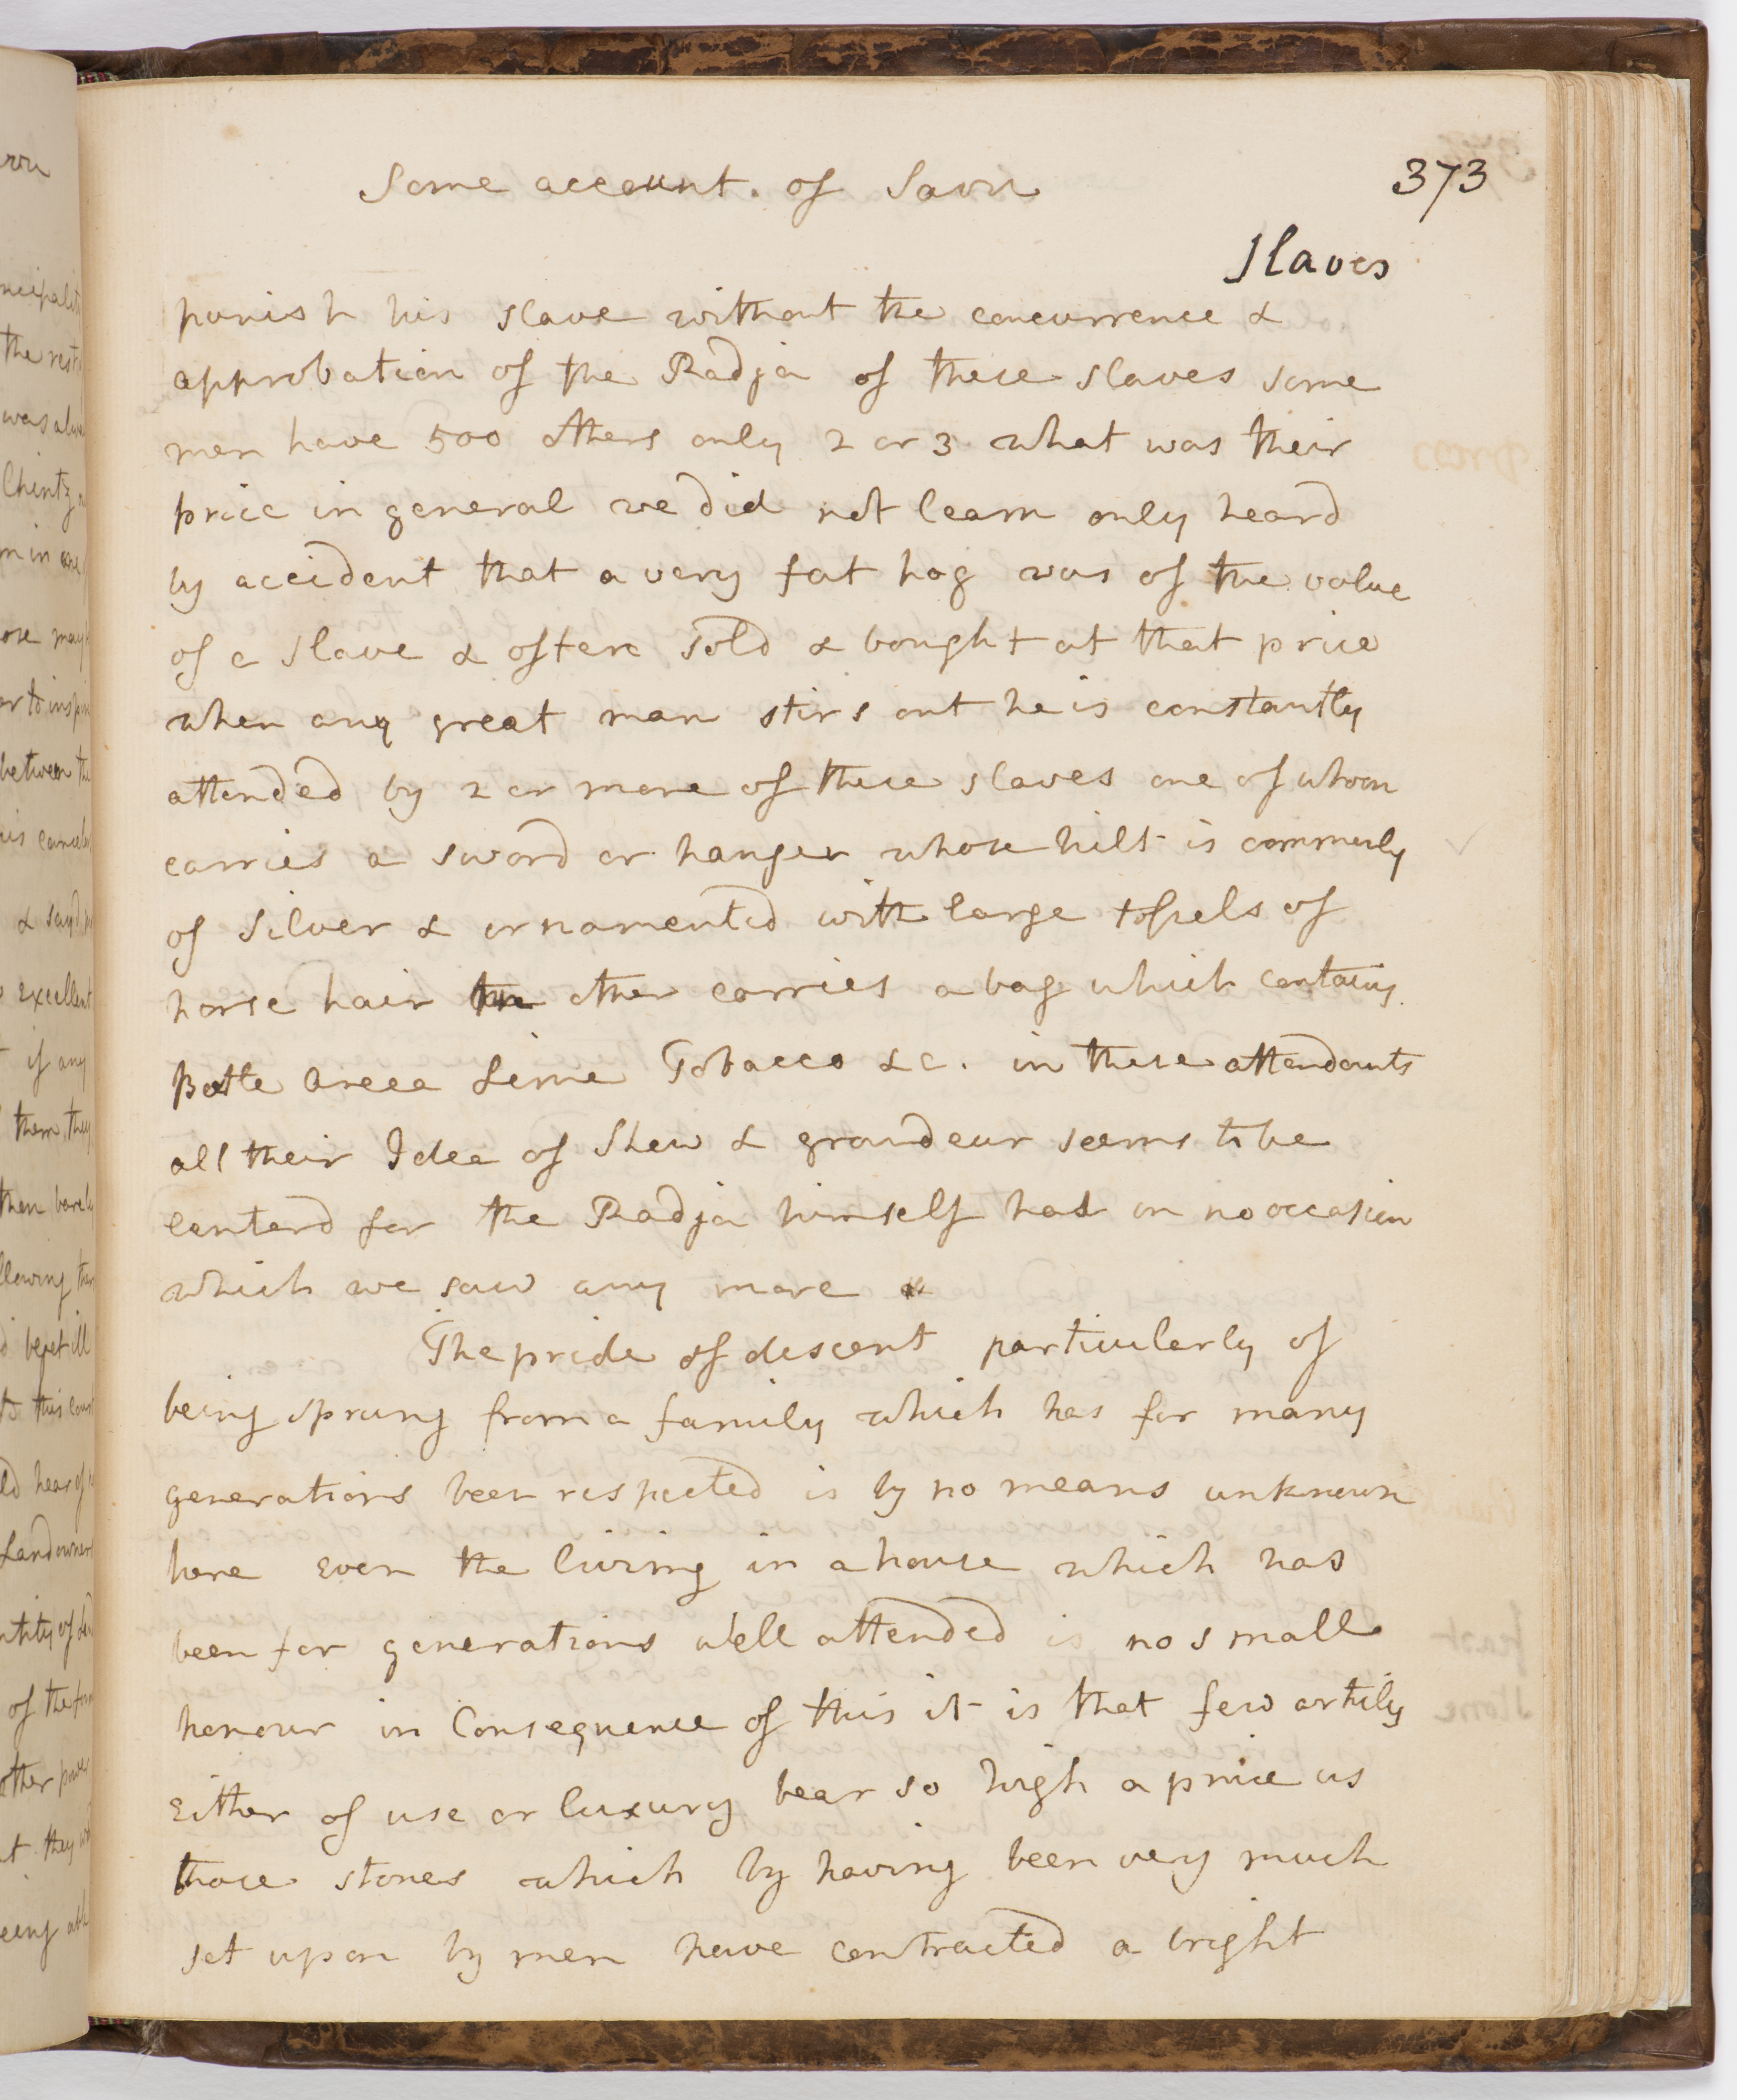 Some account. of Savu
373
Slaves
punish his slave without the concurrence &
approbation of the Radja of these slaves some
men have 500 others only 2 or 3 what was their
price in general we did not learn only heard
by accident that a very fat hog was of the value
of a slave & often sold & bought at that price
when any great man stirs out he is constantly
attended by 2 or more of these slaves one of whom
carries a sword or hanger whose hilt is commonly
of silver & ornamented with large tossels of
horse hair the other carries a bag which contains
Betle Areca Lime Tobacco &c. in these attendants
all their Idea of Shew & grandeur seems to be
centerd for the Radja himself had on no occasion
which we saw any more
The pride of descent particularly of
being sprung from a family which has for many
generations been respected is by no means unknown
here Even the living in a house which has
been for generations well attended is no small
honour in Consequence of this it is that few articles
Either of use or luxury bear so high a price as
those stones which by having been very much
set upon by men have contracted a bright
the rest
was
Chintz
between the
excellent
if any
them, they